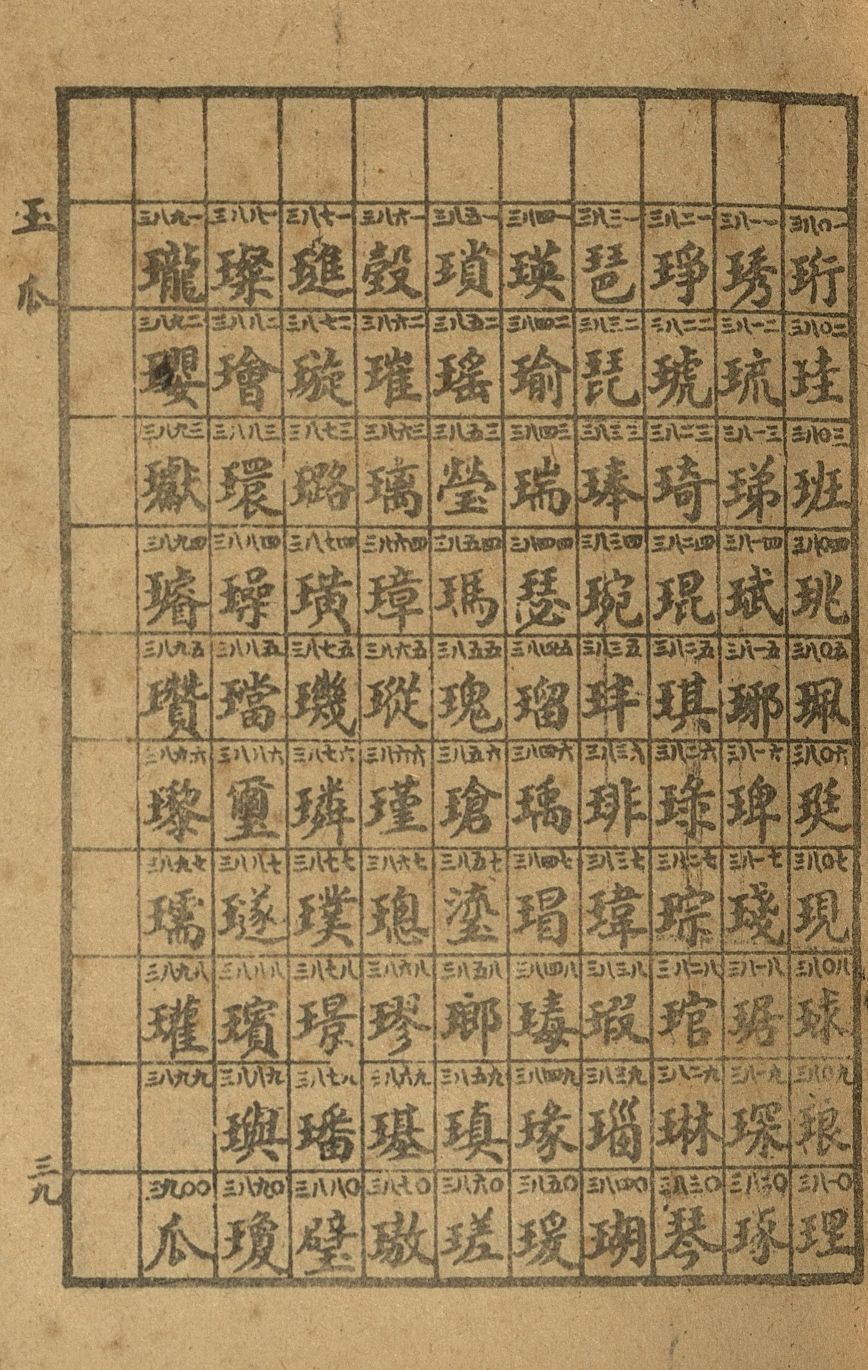 三八〇一 珩 三八〇二 珪 三八〇三 班 三八〇四 珧 三八〇五 珮 三八〇六 珽 三八〇七 現 三八〇八 球 三八〇九 琅 三八一〇 理
三八一一 琇 三八一二 琉 三八一三 珶 三八一四 珷 三八一五 琊 三八一六 琕 三八一七 琖 三八一八 琚 三八一九 琛 三八二〇 琢
三八二一 琤 三八二二 琥 三八二三 琦 三八二四 琨 三八二五 琪 三八二六 琭 三八二七 琮 三八二八 琯 三八二九 琳 三八三〇 琴
三八三一 琶 三八三二 琵 三八三三 琫 三八三四 琬 三八三五 玤 三八三六 琲 三八三七 瑋 三八三八 瑕 三八三九 瑙 三八四〇 瑚
三八四一 瑛 三八四二 瑜 三八四三 瑞 三八四四 瑟 三八四五 瑠 三八四六 瑀 三八四七 瑁 三八四八 瑇 三八四九 瑑 三八五〇 瑗
三八五一 瑣 三八五二 瑤 三八五三 瑩 三八五四 瑪 三八五五 瑰 三八五六 瑲 三八五七 瑬 三八五八 瑯 三八五九 瑱 三八六〇 瑳
三八六一 瑴 三八六二 璀 三八六三 璃 三八六四 璋 三八六五 瑽 三八六六 瑾 三八六七 璁 三八六八 璆 三八六九 璂 三八七〇 璈
三八七一 璡 三八七二 璇 三八七三 璐 三八七四 璜 三八七五 璣 三八七六 璘 三八七七 璞 三八七八 璟 三八七九 璠 三八八〇 璧
三八八一 璨 三八八二 璯 三八八三 環 三八八四 璪 三八八五 璫 三八八六 璽 三八八七 璲 三八八八 璸 三八八九 璵 三八九〇 瓊
三八九一 瓏 三八九二 瓔 三八九三 瓛 三八九四 璿 三八九五 瓚 三八九六 瓈 三八九七 瓀 三八九八 瓘 三八九九 三九〇〇 瓜
玉 瓜
三九